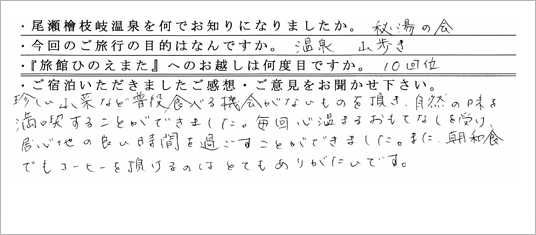 ・尾瀬檜枝岐温泉を何でお知りになりましたか。 秘湯の会
・今回のご旅行の目的はなんですか。 温泉 山歩き
・『旅館ひのえまた』へのお越しは何度目ですか。 10回位
・ご宿泊いただきましたご感想・ご意見をお聞かせ下さい。
珍しい山菜など普段食べる機会がないものを頂き、自然の味を
満喫することができました。毎回心温まるおもてなしを受け、
居心地の良い時間を過ごすことができました。また、朝和食
でもコーヒーを頂けるのはとてもありがたいです。